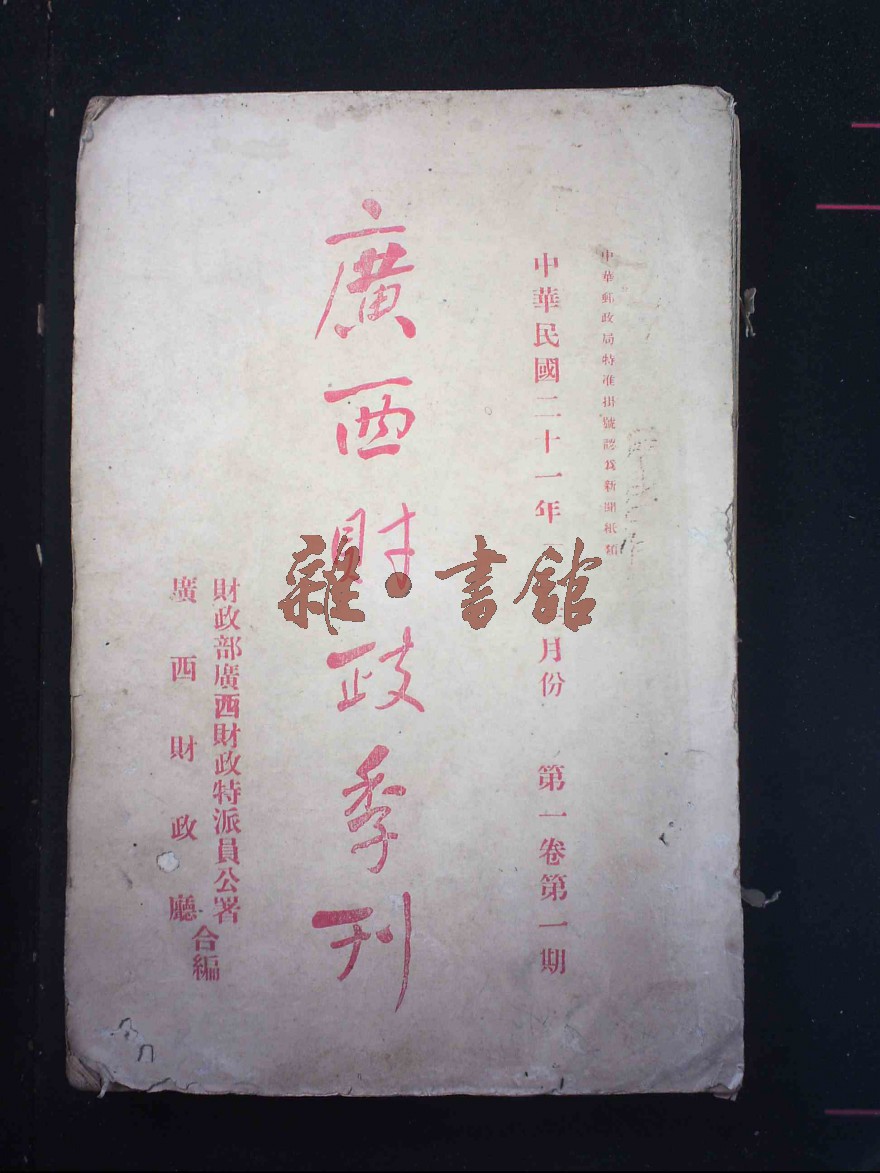 中華郵政局特准掛號認爲新聞紙類
中華民國二十一年
月份
第一卷第一期
廣西財政季刊
財政部廣西財政特派員公署
廣西財政廳
合編
雜·書館